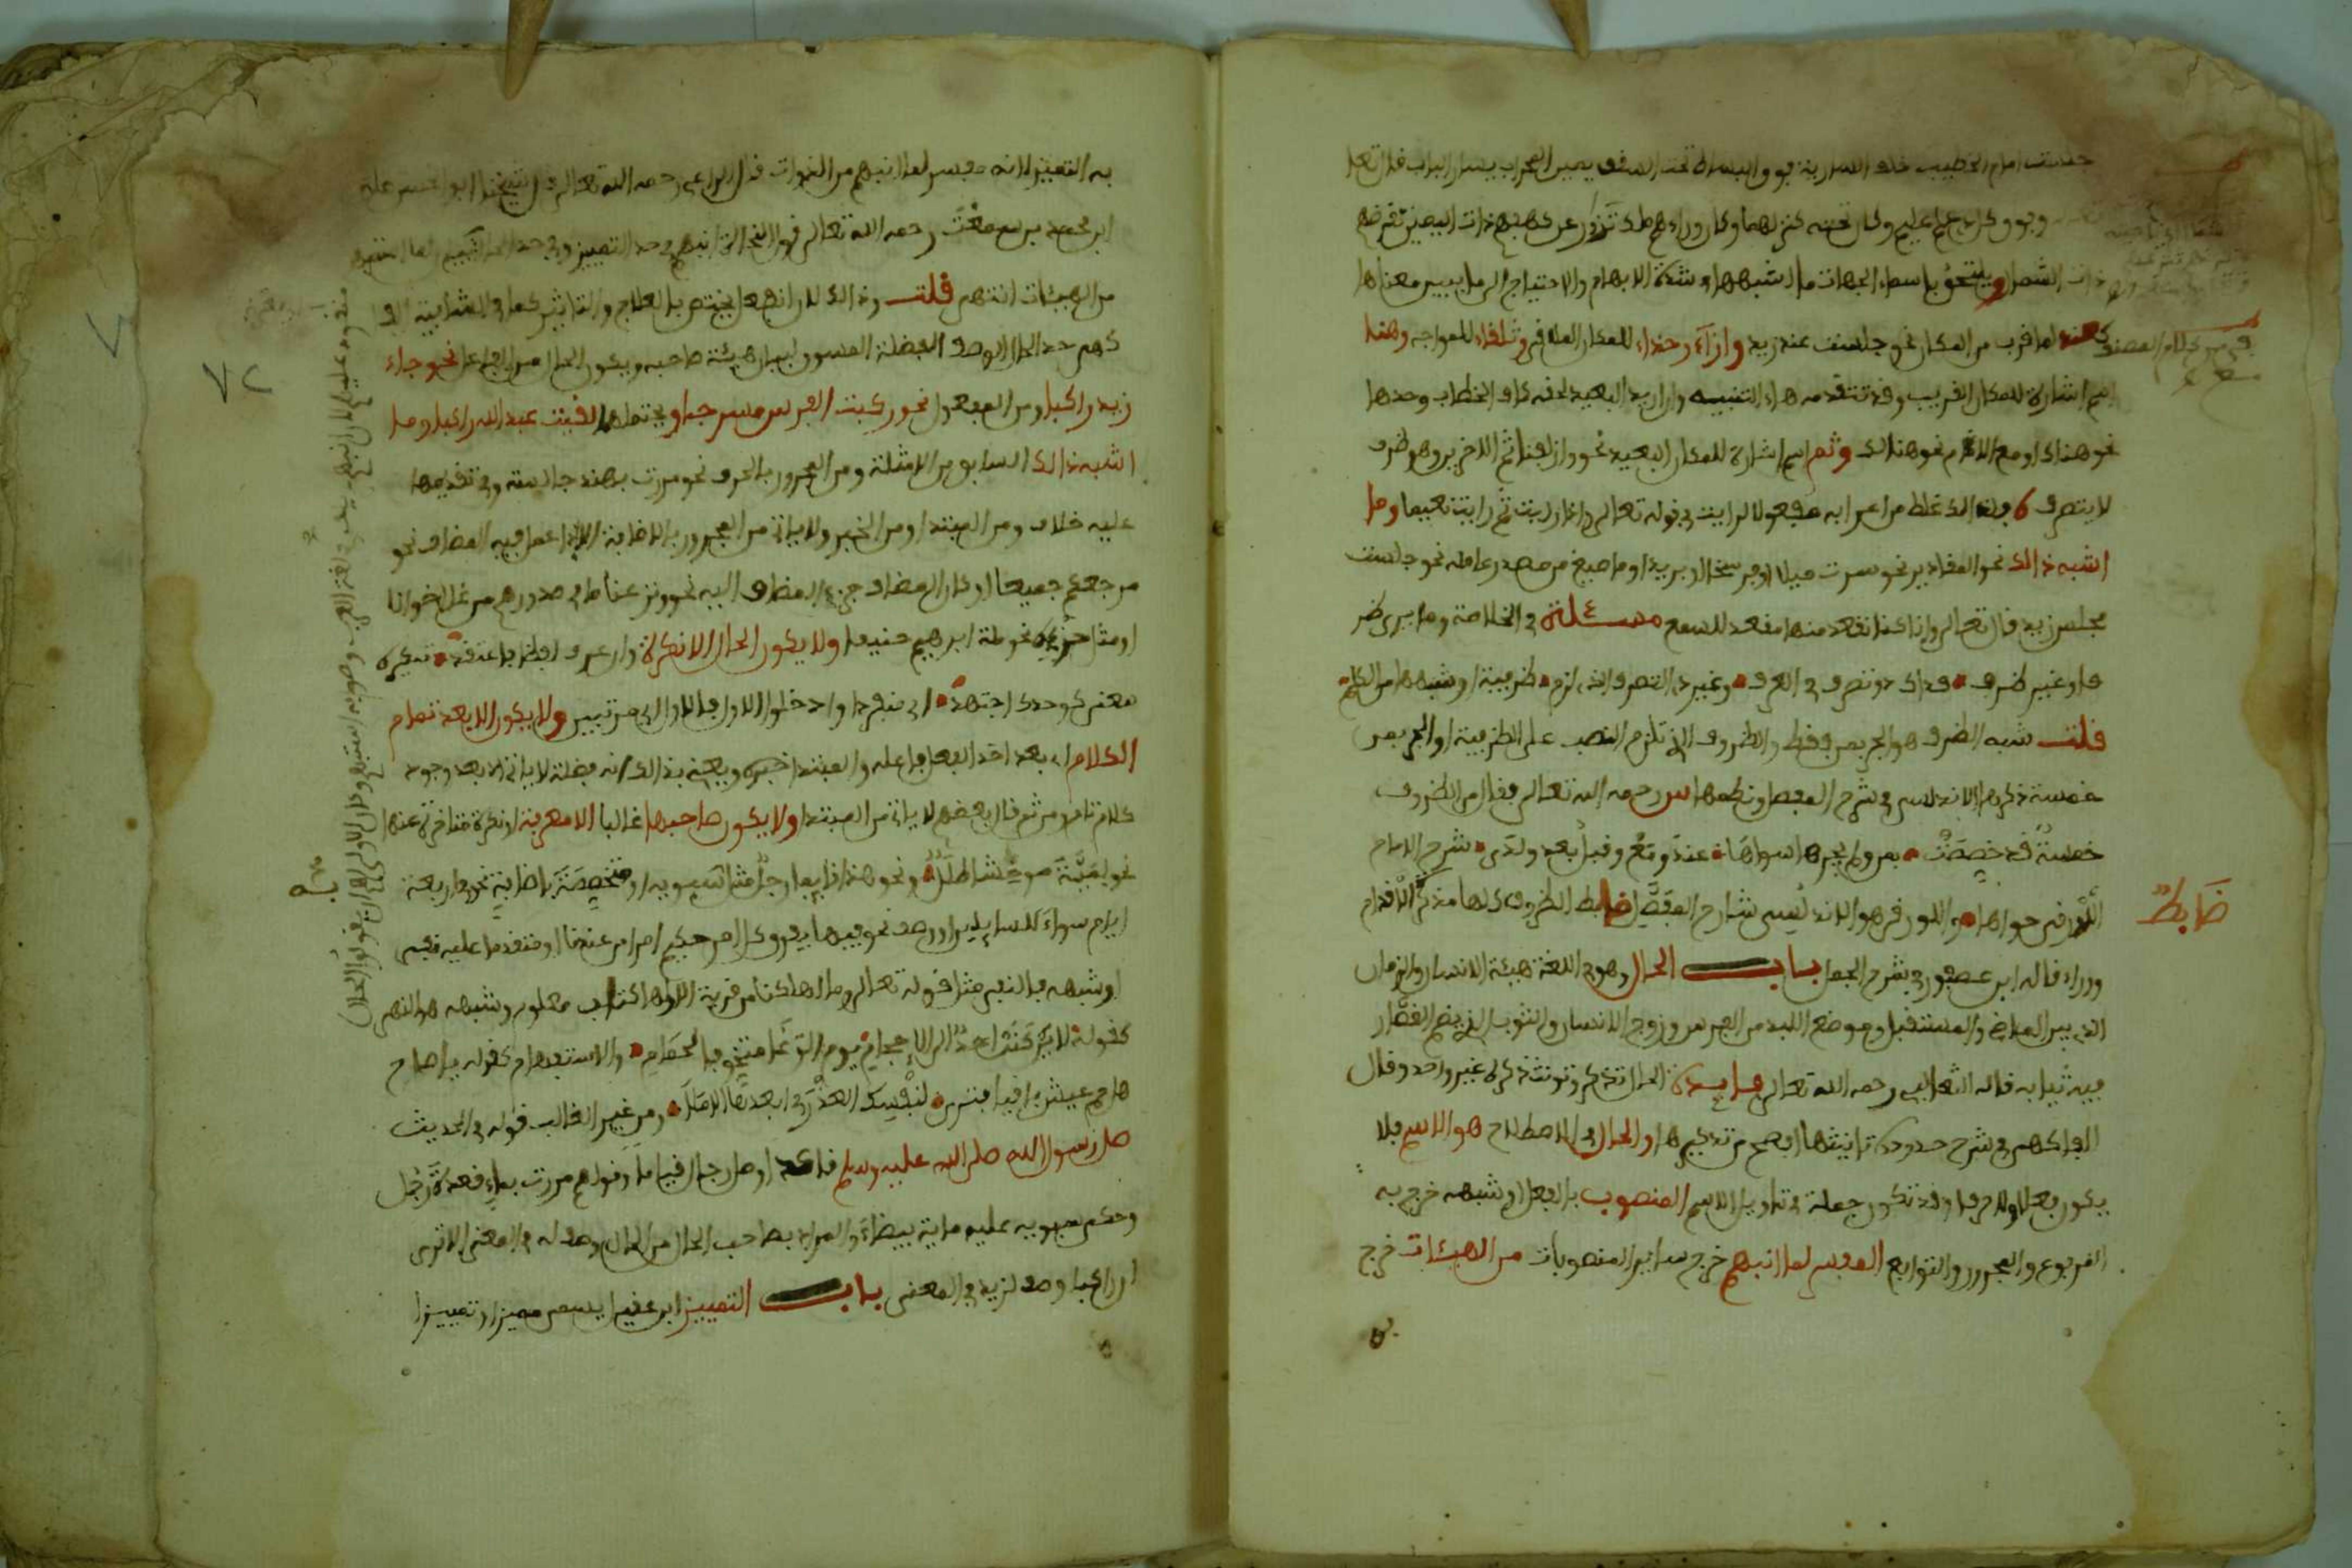 جلست امام الخطيب خلف السارية فوق البساط تحت السقف يمين المحراب يسار الباب قال تعلى
وفوق كل ذي علم عليم وكان تحته كنز لهما وكان وراءهم ملك تزور عن كهفهم ذات اليمين تقرضهم
ذات الشمال ويلتحق باسماء الجهات ما اشبهها في شدة الابهام والاحتياج الى ما يبين معناها
كعند لما قرب من المكان نحو جلست عند زيد وازاء وحذاء للمكان وتلقاء للمواجه وهنا
اسم اشارة للمكان القريب وقد تتقدمه هاء التنبيه وان اريد البعيد لحقه كاف الخطاب وحدها
نحو هناك او مع اللام نحو هنالك وثم اسم اشارة للمكان البعيد نحو وازلفنا ثم الاخرين وهو ظرف
لا يتصرف ولذالك غلط من اعرابه مفعولا لرايت في قوله تعالى واذا رايت ثم رايت نعيما وما
اشبه ذالك نحو المقادير نحو سرت ميلا او فرسخا او بريدا وما صيغ من مصدر عامله نحو جلست
مجلس زيد قال تعالى وانا كنا نقعد منها مقاعد للسمع مسئلة في الخلاصة وما يرى ظر
فا وغير ظرف فذاك ذو تصرف في العرف وغير ذي التصرف الذي لزم ظرفية او شبهها من الكلم
قلت شبه الظرف هو الجر بمن فقط والظروف التي تلزم النصب على الظرفية او الجر بمن
خمسة ذكرها الاندلسي في شرح المفصل ونظمها س رحمه الله تعالى فقال من الظروف
خمسة قد خصصت بمن ولم يجرها سواها عند ومع وقبل بعد ولدى شرح الامام
اللورقي حواها واللورقي هو الاندلسي شارح المفصل ضابط الظروف كلها مذكرة الا قدام
ووراء قاله ابن عصفور في شرح الجمل باب الحال وهو في اللغة هيئة الانسان والزمان
الذي بين الماضي والمستقبل وموضع اللبد من الفرس وزوج الانسان والثوب الذي يضم القصار
فيه ثيابه قاله الثعالبي رحمه الله تعالى فايدة الحال تذكر وتونث ذكره غير واحد وقال
الفاكهي في شرح حدوده تانيثها افصح من تذكيرها والحال في الاصطلاح هو الاسم فلا
يكون فعلا ولا حرفا وقد تكون جملة في تاويل الاسم المنصوب بالفعل او شبهه خرج به
المرفوع والمجرور والتوابع المفسر لما انبهم خرج ساير المنصوبات من الهيئات خرج
ضابط
به التمييز لانه مفسر لما انبهم من الذوات قال الراعي رحمه الله تعالى قال شيخنا ابو الحسن علي
ابن محمد بن سمعت رحمه الله تعالى قول النحاة انبهم في حد التمييز وفي حد الحال
من الهيئات انتهى قلت وذالك لان انفعل يختص بالعلاج والتاثير كما في الشافية
كهي حد الحال الوصف الفضلة المسوق لبيان هيئة صاحبه ويكون الحال من الفاعل نحو جاء
زيد راكبا ومن المفعول نحو ركبت الفرس مسرجا ويحتملهما لقيت عبد الله راكبا وما
اشبه ذالك السابق من الامثلة ومن المجرور بالحرف نحو مررت بهند جالسة وفي تقديمها
عليه خلاف ومن المبتدا ومن الخبر ولا ياتي من المجرور بالاضافة الا اذا عمل فيه المضاف نحو
مرجعكم جميعا او كان المضاف جزء المضاف اليه نحو ونزعنا ما في صدورهم من غل اخوانا
او مثل جزئه نحو ملة ابرهيم حنيفا ولا يكون الحال الا نكرة وان عرف لفظا فاعتقد تنكيره
معنى كوحدك اجتهد اي منفردا وادخلوا الاول فالاول اي مرتبين ولا يكون الا بعد تمام
الكلام اي بعد اخذ الفعل فاعله والمبتدا خبره ويعني بذالك انه فضلة لا ياتي الا بعد وجود
كلام تام ومن ثم قال بعضهم لا ياتي من المبتدا ولا يكون صاحبها غالبا الا معرفة او نكرة متاخرة عنها
نحو لمية موحشا طلل ونحو هذا قايما رجل مثل سيبويه او متخصصة باضافة نحو في اربعة
ايام سواء للسايلين او وصف نحو فيها يفرق كل امر حكيم امرا من عندنا او متقدما عليه نفي
او شبهه فالنفي مثل قوله تعالى وما اهلكنا من قرية الا ولها كتاب معلوم وشبهه هو النهي
كقوله لا يركنن احد الى الاحجام يوم الوغى متخوفا لحمام والاستفهام كقوله يا صاح
هل حم عيش باقيا فترى لنفسك العذر في ابعادها الاملا ومن غير الغالب قوله في الحديث
صلى رسول الله صلى الله عليه وسلم قاعدا وصلى رجال قياما وقولهم مررت بماء قعدة رجل
وحكى سيبويه عليه ماية بيضاء والمراد بصاحب الحال من الحال وصف له في المعنى الا ترى
ان راكبا وصف لزيد في المعنى باب التمييز ابن عقيل يسمى مميزا وتمييزا
٧٢